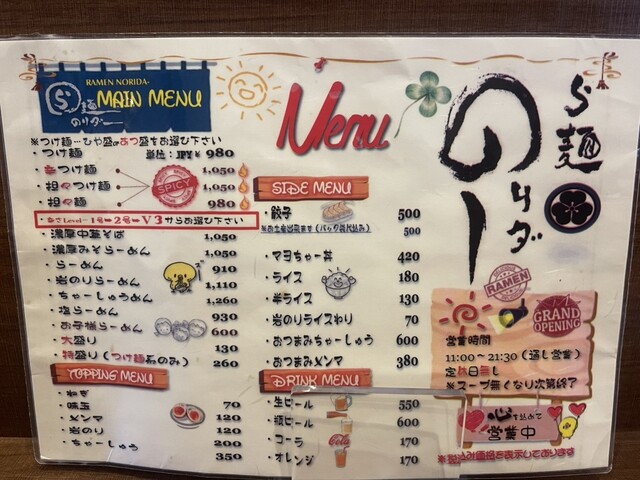 RAMEN NORIDA-
MAIN MENU
ら麺
のりダー
※つけ麺…ひや盛orあつ盛をお選び下さい
・つけ麺 単位：JPY¥ 980
・辛つけ麺 1,050
・担々つけ麺 1,050
・担々麺 980
SPICY
辛さLevel…1号→2号→V3からお選び下さい
・濃厚中華そば 1,050
・濃厚みそらーめん 1,050
・らーめん 910
・岩のりらーめん 1,110
・ちゃーしゅうめん 1,260
・塩らーめん 930
・お子様らーめん 600
・大盛り 130
・特盛り(つけ麺系のみ) 260
TOPPING MENU
・ネギ 70
・味玉 120
・メンマ 120
・岩のり 200
・ちゃーしゅう 350
Menu
SIDE MENU
・餃子 500
※お土産出来ます(パック代込み) 500
・マヨちゃー丼 420
・ライス 180
・半ライス 130
・岩のりライスわり 70
・おつまみちゃーしゅう 600
・おつまみメンマ 380
DRINK MENU
・生ビール 550
・瓶ビール 600
・コーラ 170
・オレンジ 170
ら麺
のりダー
RAMEN
GRAND OPENING
営業時間
11:00～21:30(通し営業)
定休日無し
※スープ無くなり次第終了
心を込めて
営業中
※税込み価格を表示しております